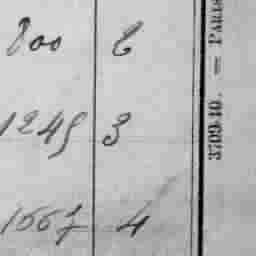 800 6
1245 3
1667 4
3709-10. — PARIS